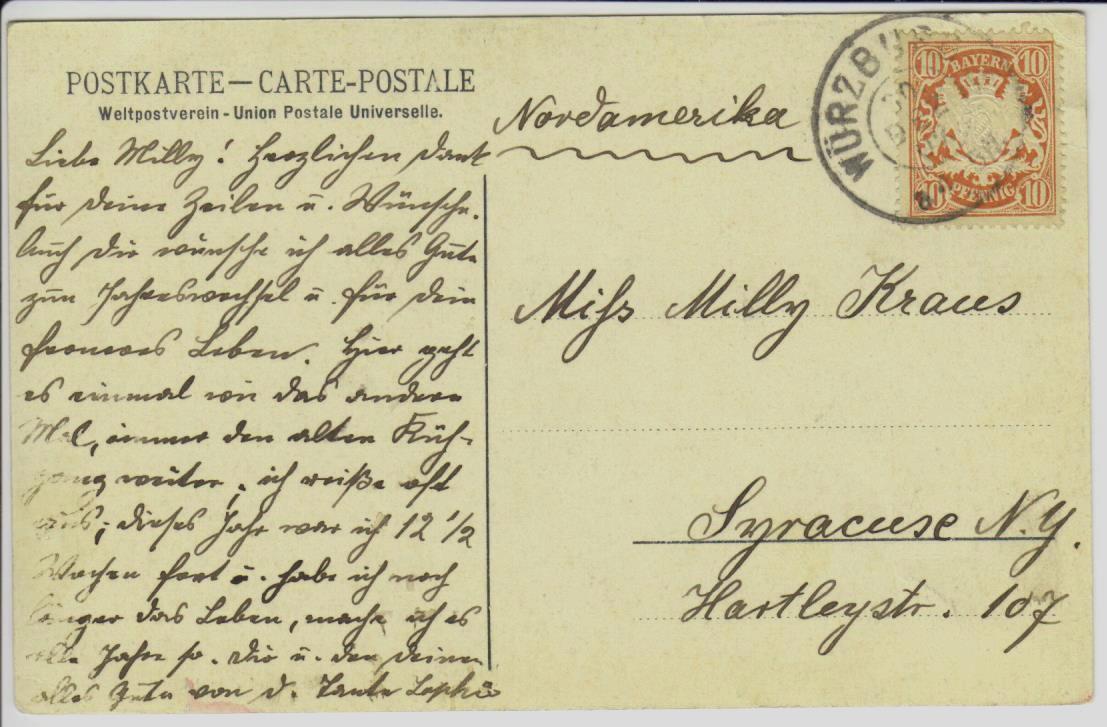 POSTKARTE — CARTE-POSTALE
Weltpostverein - Union Postale Universelle.
Liebe Milly! Herzlichen Dank
für deine Zeilen u. Wünsche.
Auch dir wünsche ich alles Gute
zum Jahreswechsel u. für dein
ferneres Leben. Hier geht
es einmal wie das andere
Mal, immer den alten
weiter, ich reiße oft
aus; dieses Jahr war ich 12 1/2
Wochen fort u. habe ich noch
länger das Leben, mache ich es
alle Jahre so. Dir u. den Deinen
alles Gute von d. Tante Sophie
Nordamerika
WÜRZBURG
10 BAYERN 10
10 PFENNIG 10
Miss Milly Kraus
Syracuse N.Y.
Hartleystr. 107